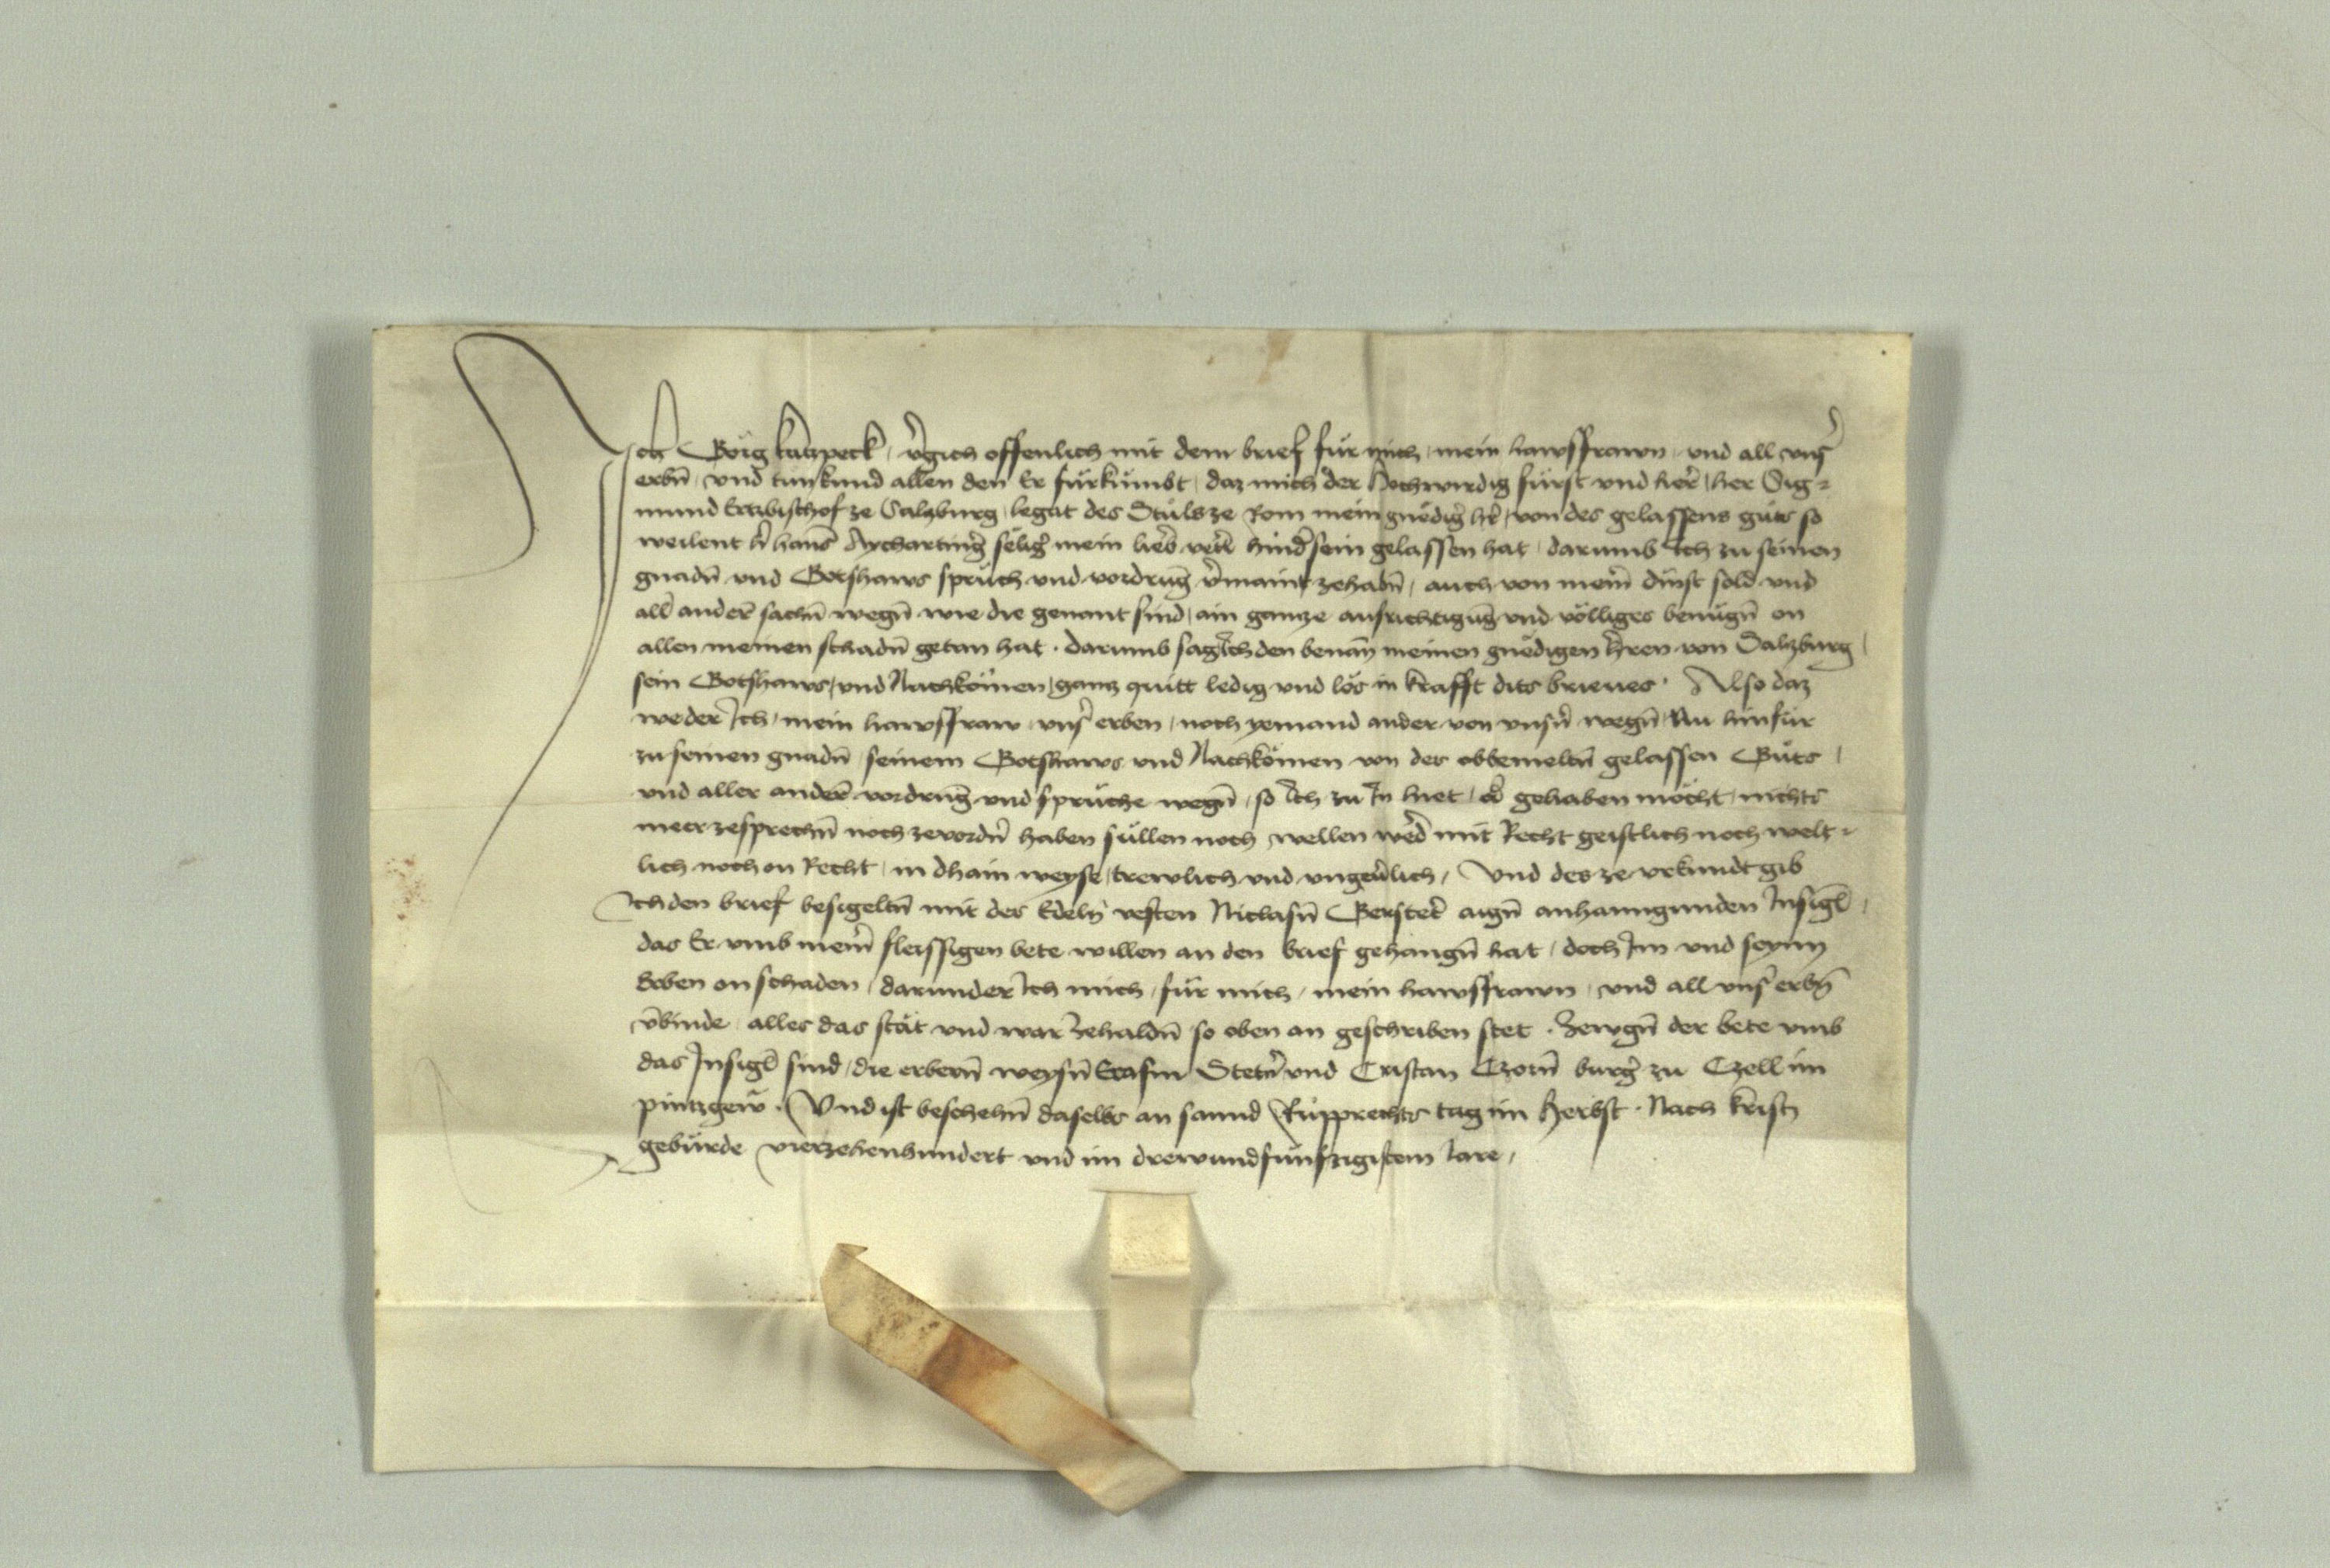 Ich Görig katzpeck v̄gich offenlich mit dem brief für mich mein hawsfrawn und all vns̄
erbn̄ und tun kund allen den Er fürkümbt daz mich der Hochwirdig fürst und her̄r her Sig-
mund Ertzbischof ze Salzburg legat des Stüls ze Rom mein gnëdiḡ hr̄ von des gelassens güts so
weilent hr̄ hanns Aychartinḡ sëliḡ mein lieb̄ vett̄ hind̄ sein gelassen hat darumb Ich zu seinen
gnadn̄ und Gotshaws sprüch und vordrūg v̄maint zehabn̄ auch von meim̄ dinst sold und
all ander̄ sachn̄ wegn̄ wie die genant sind ain gantze ausrichtigūg und völliges benügn̄ on
allen meinen schadn̄ getan hat . darumb sag Ich den benan̄ meinen gnëdigen h̄ren von Salzburg
sein Gotshaws und Nachkömen gantz quitt ledig und lös in krafft dits brieues . Also daz
weder Ich mein hawsfraw vns̄ erben noch yemand ander von vnsn̄ wegn̄ Nu hinfür
zu seinen gnadn̄ seinem Gotshaws und Nachkömen von des obbemeltn̄ gelassen Güts
und aller ander̄ vordrūg und sprüche wegn̄ so Ich zu In hiet od̄ gehaben möcht nichts
meer zesprechn̄ noch zevordn̄ haben süllen noch wellen wed̄ mit Recht geistlich noch welt-
lich noch on Recht in dhain weyse trewlich und ungev̄lich Und des ze urkundt gib
Ich den brief besigeltn̄ mit des Edeln̄ vesten Niclasn̄ Gerstet̄ aign̄ anhanngunden Insigl
das Er umb meim̄ fleissigen bete willen an den brief gehangn̄ hat doch Im und seynn
Erben on schaden darunder Ich mich für mich mein hawsfrawn und all vns̄ erbn̄
v̄binde alles das stät und war zehaldn̄ so oben an geschriben stet . Zewgn̄ der bete umb
das Insigl sind die erbern̄ weysn̄ Erasm Stetn̄ und Cristan Czorn̄ burḡ zu Czell im
pintzgew . Und ist beschehn̄ daselbs an sannd Rupprechts tag im Herbst . Nach kristj
gebürde vierzehenhundert und im drewundfünfzigistem Iare